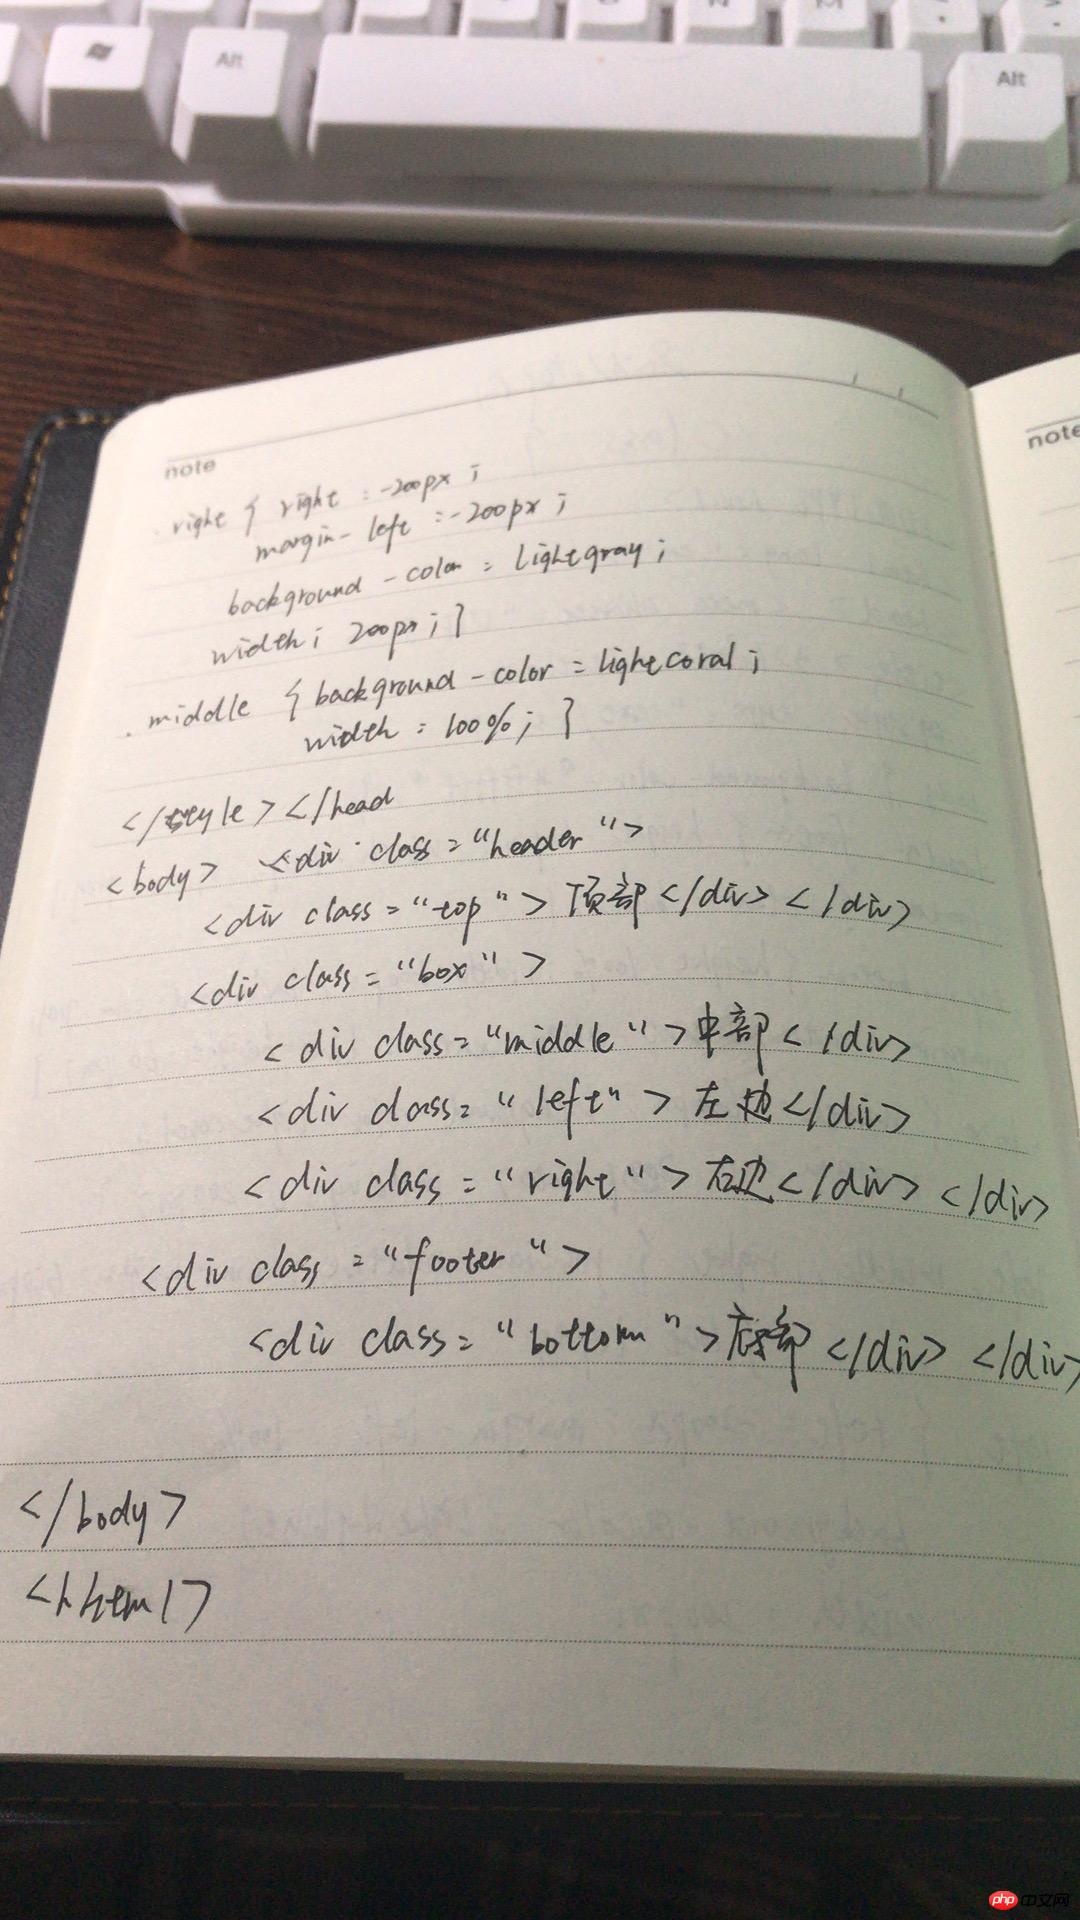 Alt
N
M
Alt
note
note
.right { right : -200px ;
margin-left : -200px ;
background-color : lightgray ;
width ; 200px ; }
.middle { background-color : lightcoral ;
width : 100% ; }
</style></head
<body> <div class="header">
<div class="top">顶部</div></div>
<div class="box">
<div class="middle">中部</div>
<div class="left">左边</div>
<div class="right">右边</div></div>
<div class="footer">
<div class="bottom">底部</div></div>
</body>
<html>
php中文网